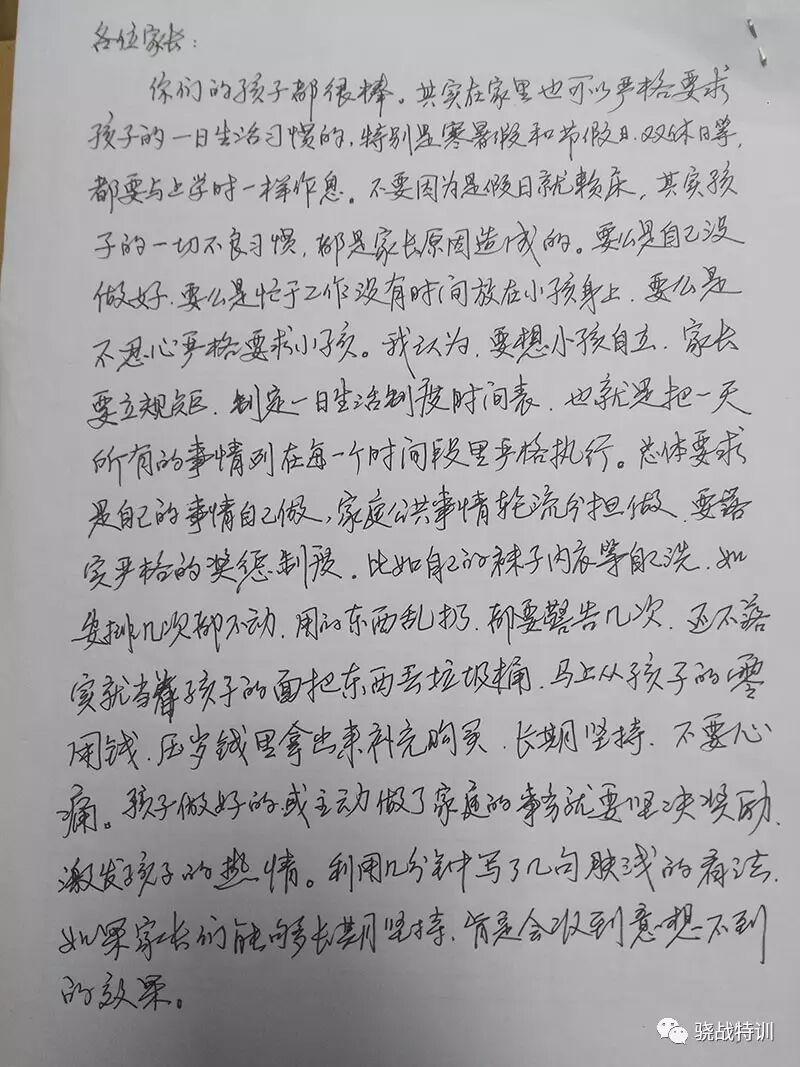 各位家长：
你们的孩子都很棒。其实在家里也可以严格要求
孩子的一日生活习惯的，特别是寒暑假和节假日、双休日等，
都要与上学时一样作息。不要因为是假日就赖床，其实孩
子的一切不良习惯，都是家长原因造成的。要么是自己没
做好，要么是忙于工作没有时间放在小孩身上，要么是
不忍心严格要求小孩。我认为，要想小孩自立，家长
要立规矩，制定一日生活制度时间表，也就是把一天
所有的事情列在每一个时间段里严格执行。总体要求
是自己的事情自己做，家庭公共事情轮流分担做，要落
实严格的奖惩制度。比如自己的袜子内衣等自己洗，如
安排几次都不动，用的东西乱扔，都要警告几次，还不落
实就当着孩子的面把东西丢垃圾桶，马上从孩子的零
用钱、压岁钱里拿出来补充购买，长期坚持，不要心
痛。孩子做好的或主动做了家庭的事务就要坚决奖励，
激发孩子的热情。利用几分钟写了几句肤浅的看法，
如果家长们能够长期坚持，肯定会收到意想不到
的效果。
骁战特训